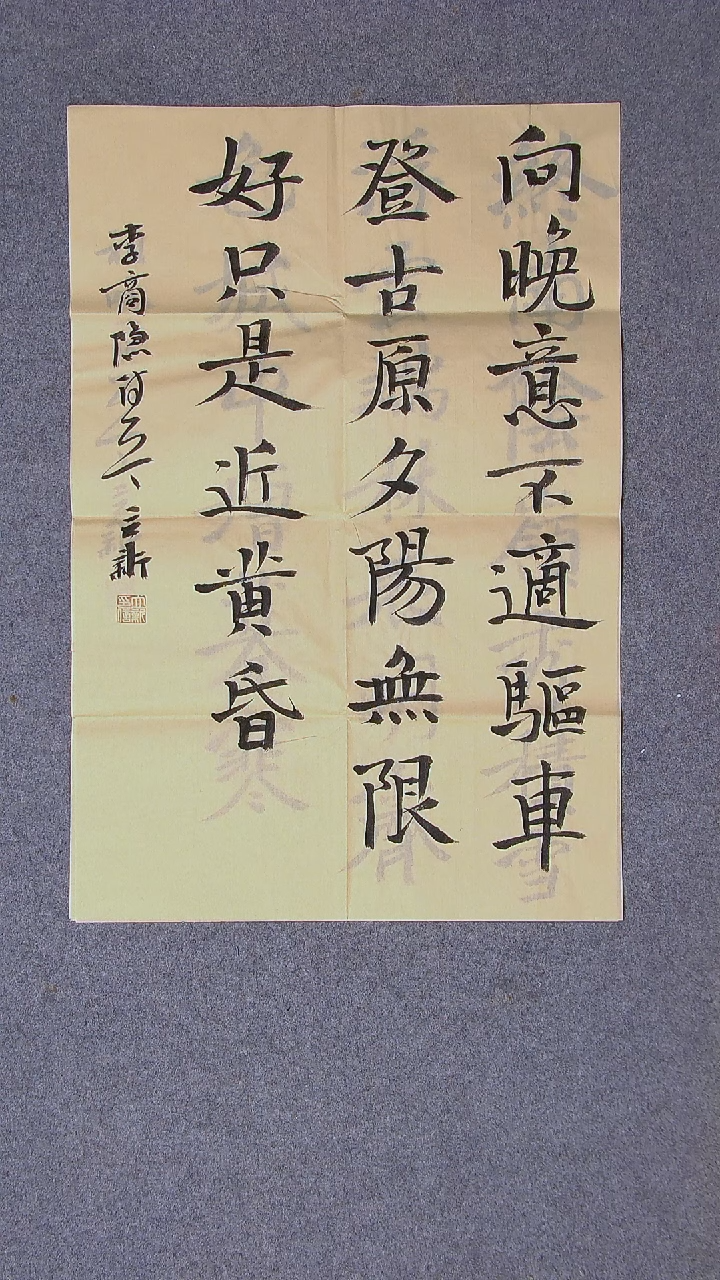 向晚意不適驅車
登古原夕陽無限
好只是近黄昏
李商隐诗一首